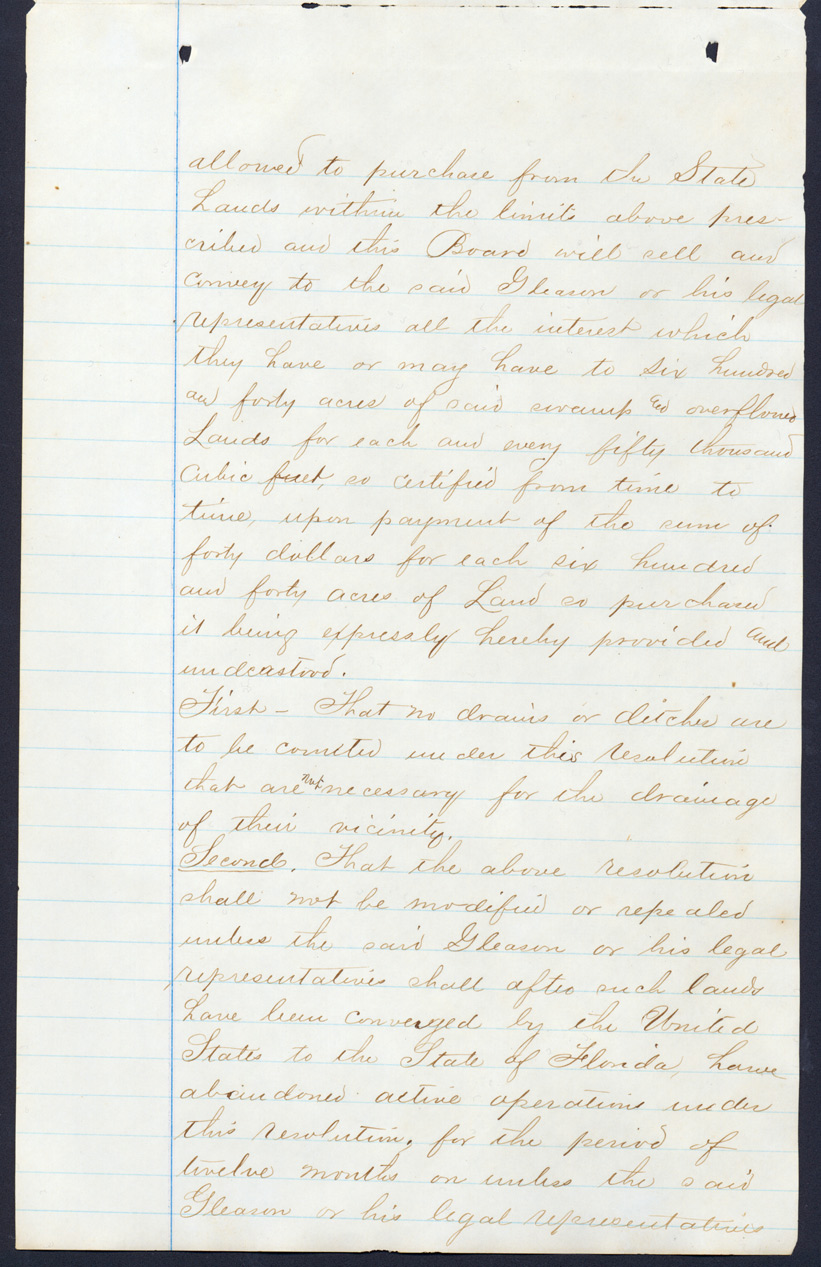 allowed to purchase from the State
Lands within the limits above pres-
cribed and this Board will sell and
convey to the said Gleason or his legal
representatives all the interest which
they have or may have to six hundred
and forty acres of said swamp &d overflowed
Lands for each and every fifty thousand
cubic feet, so certified from time to
time, upon payment of the sum of
forty dollars for each six hundred
and forty acres of Land so purchased
it being expressly hereby provided and
understood.
First – That no drains or ditches are
to be counted under this resolution
that are not necessary for the drainage
of their vicinity.
Second. That the above resolution
shall not be modified or repealed
unless the said Gleason or his legal
representatives shall after such lands
have been conveyed by the United
States to the State of Florida, have
abandoned active operations under
this resolution, for the period of
twelve months or unless the said
Gleason or his legal representatives